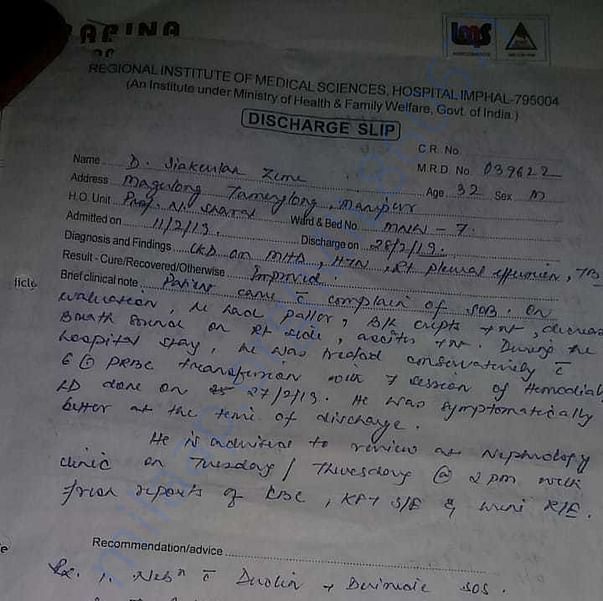 REGIONAL INSTITUTE OF MEDICAL SCIENCES, HOSPITAL IMPHAL-795004
(An Institute under Ministry of Health & Family Welfare, Govt. of India.)
DISCHARGE SLIP
C.R. No.
M.R.D. No. 039622
Name D. Siakeulan Zeme
Age 32 Sex M
Address Magulong Tamenglong, Manipur
H.O. Unit Prof. N. Sharat Ward & Bed No. MNW - 7.
Admitted on 11/2/19. Discharge on 28/2/19.
Diagnosis and Findings CKD on MHD, HTN, Rt pleural effusion, TB
Result - Cure/Recovered/Otherwise Improved.
Brief clinical note Patient came c̄ complain of SOB. On
evaluation, he had pallor, B/L crepts +nt, decreas
Breath sound on Rt side, ascites +nt. During the
hospital stay, he was treated conservatively c̄
6 PRBC transfusion with 7 session of Hemodial
LD done on 27/2/19. He was symptomatically
better at the time of discharge.
He is advised to review at Nephrology
clinic on Tuesday / Thursday @ 2 pm with
prior reports of CBC, KFT S/E & urine R/E.
Recommendation/advice
Rx. 1. Nebn c̄ Duolin + SOS.